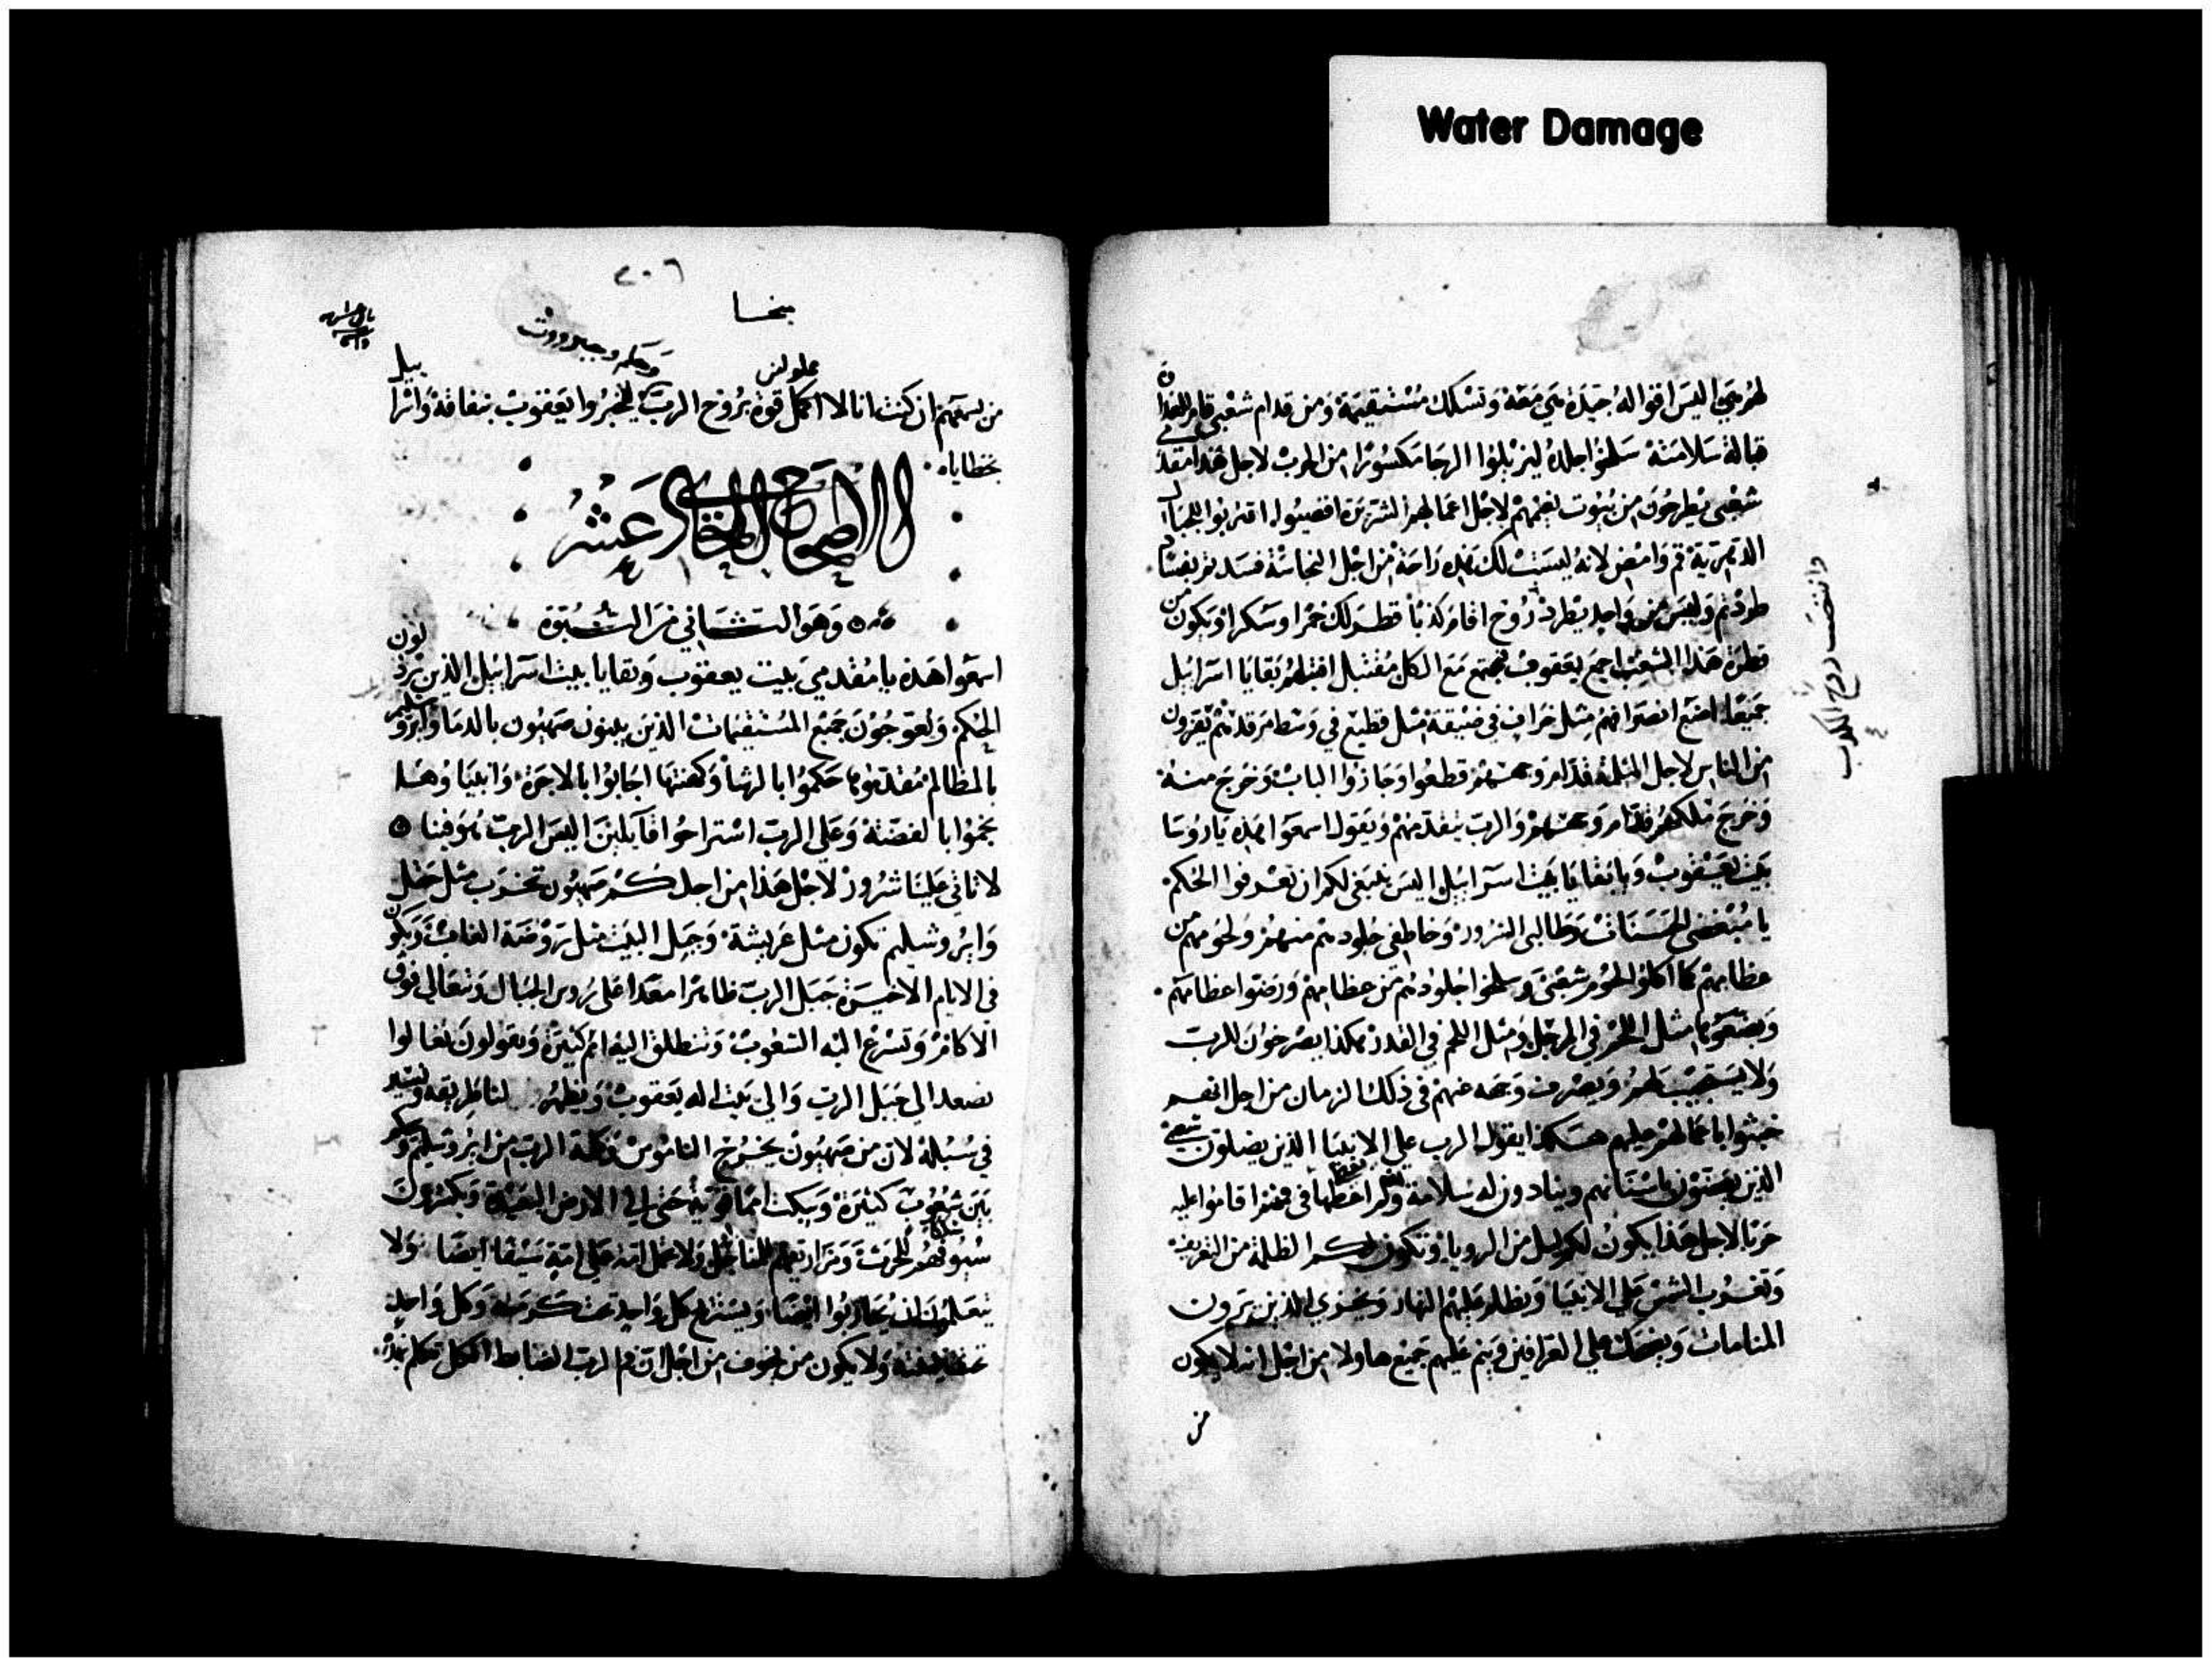 Water Damage
لهم هي اليس اقواله جيده هي معه وتسلك مستقيمة ومن قدام شعبي قام للغدا
قبالة سلامته سلخوا جلده لينزيلوا الرجا مكسورا من الحرب لاجل هذا مقدمي
شعبي يطرحون من بيوت نعيمهم لاجل اعمالهم الشريرة اقصيوا اقتربوا للجبال
الدهرية قم وامض لانه ليست لك هذه راحة من اجل النجاسة فسدتم بفساد
طردتم وليس من واحد يطرد روح اقام كذبا قطر لك خمرا وسكرا ويكون من
قطرة هذا الشعب اجمع يعقوب يجتمع مع الكل مقتبل اقتبلهم بقايا اسرائيل
جميعا اضع انصرافهم مثل خراف في ضيقة مثل قطيع في وسط مرقدهم يفرون
من الناس لاجل الثلمة قدام وجههم قطعوا وجازوا الباب وخرج منه
وخرج ملكهم قدام وجههم والرب يتقدمهم ويقول اسمعوا هذه يا روسا
بيت يعقوب ويا بقايا بيت اسرائيل اليس ينبغي لكم ان تعرفوا الحكم
يا مبغضي الحسنات وطالبي الشرور وخاطفي جلودهم منهم ولحومهم من
عظامهم كما اكلوا لحوم شعبي وسلخوا جلودهم من عظامهم ورضوا عظامهم
مثل اللحم في المرجل ومثل اللحم في القدر هكذا يصرخوان للرب
ولا يستجيب لهم ويصرف وجهه عنهم في ذلك الزمان من اجل انهم
خبثوا باعمالهم عليهم هكذا يقول الرب على الانبيا الذين يضلون شعبي
الذين يعضون باسنانهم وينادون له سلامة ولم في فمهم اقاموا عليه
حربا لاجل هذا يكون لكم ليل من الرويا وتكون لكم الظلمة من التعريف
وتغرب الشمس على الانبيا ويظلم عليهم النهار ويخزي الذين يرون
المنامات ويضحك على العرافين ويتم عليهم جميع هاولا من اجل انه لا يكون
من
وانتصب روح الكذب
٢٠٦
ميخا
مملو لنى
وحكم وجبروت
من يسمعهم ان كنت انا لا اكمل قوة بروح الرب ليخبروا يعقوب بنفاقة واسراييل
بخطاياه
الاصحاح الحادي عشر
وهو الثاني من النبوة
اسمعوا هذه يا مقدمي بيت يعقوب وبقايا بيت اسرائيل الذين يرذلون
الحكم ويعوجون جميع المستقيمات الذين يبنون صهيون بالدما وايروشليم
بالمظالم مقدموها حكموا بالرشا وكهنتها اجابوا بالاجرة وانبياوها
نجموا بالفضة وعلى الرب استراحوا قايلين اليس الرب هو فينا
لا تاتي علينا شرور لاجل هذا من اجلكم صهيون تخرب مثل حقل
وايروشليم تكون مثل عريشة وجبل البيت مثل روضة الغاب ويكون
في الايام الاخيرة جبل الرب ظاهرا معدا على روس الجبال وتتعالى فوق
الاكام وتسرع اليه الشعوب وتنطلق اليه امم كثيرة ويقولون تعالوا
نصعد الى جبل الرب والى بيت اله يعقوب ويظهر لنا طريقه ونسير
في سبله لان من صهيون يخرج الناموس وكلمة الرب من ايروشليم ويحكم
بين شعوب كثيرة ويبكت امما قوية حتى الى الارض البعيدة ويكسرون
سيوفهم للحرث ومزاريقهم للمناجل ولا تحمل امة على امة سيفا ايضا ولا
يتعلمون ان يحاربوا ايضا ويستريح كل واحد تحت كرمته وكل واحد
تحت تينته ولا يكون من يخوف من اجل ان فم الرب الضابط الكل تكلم بهذا